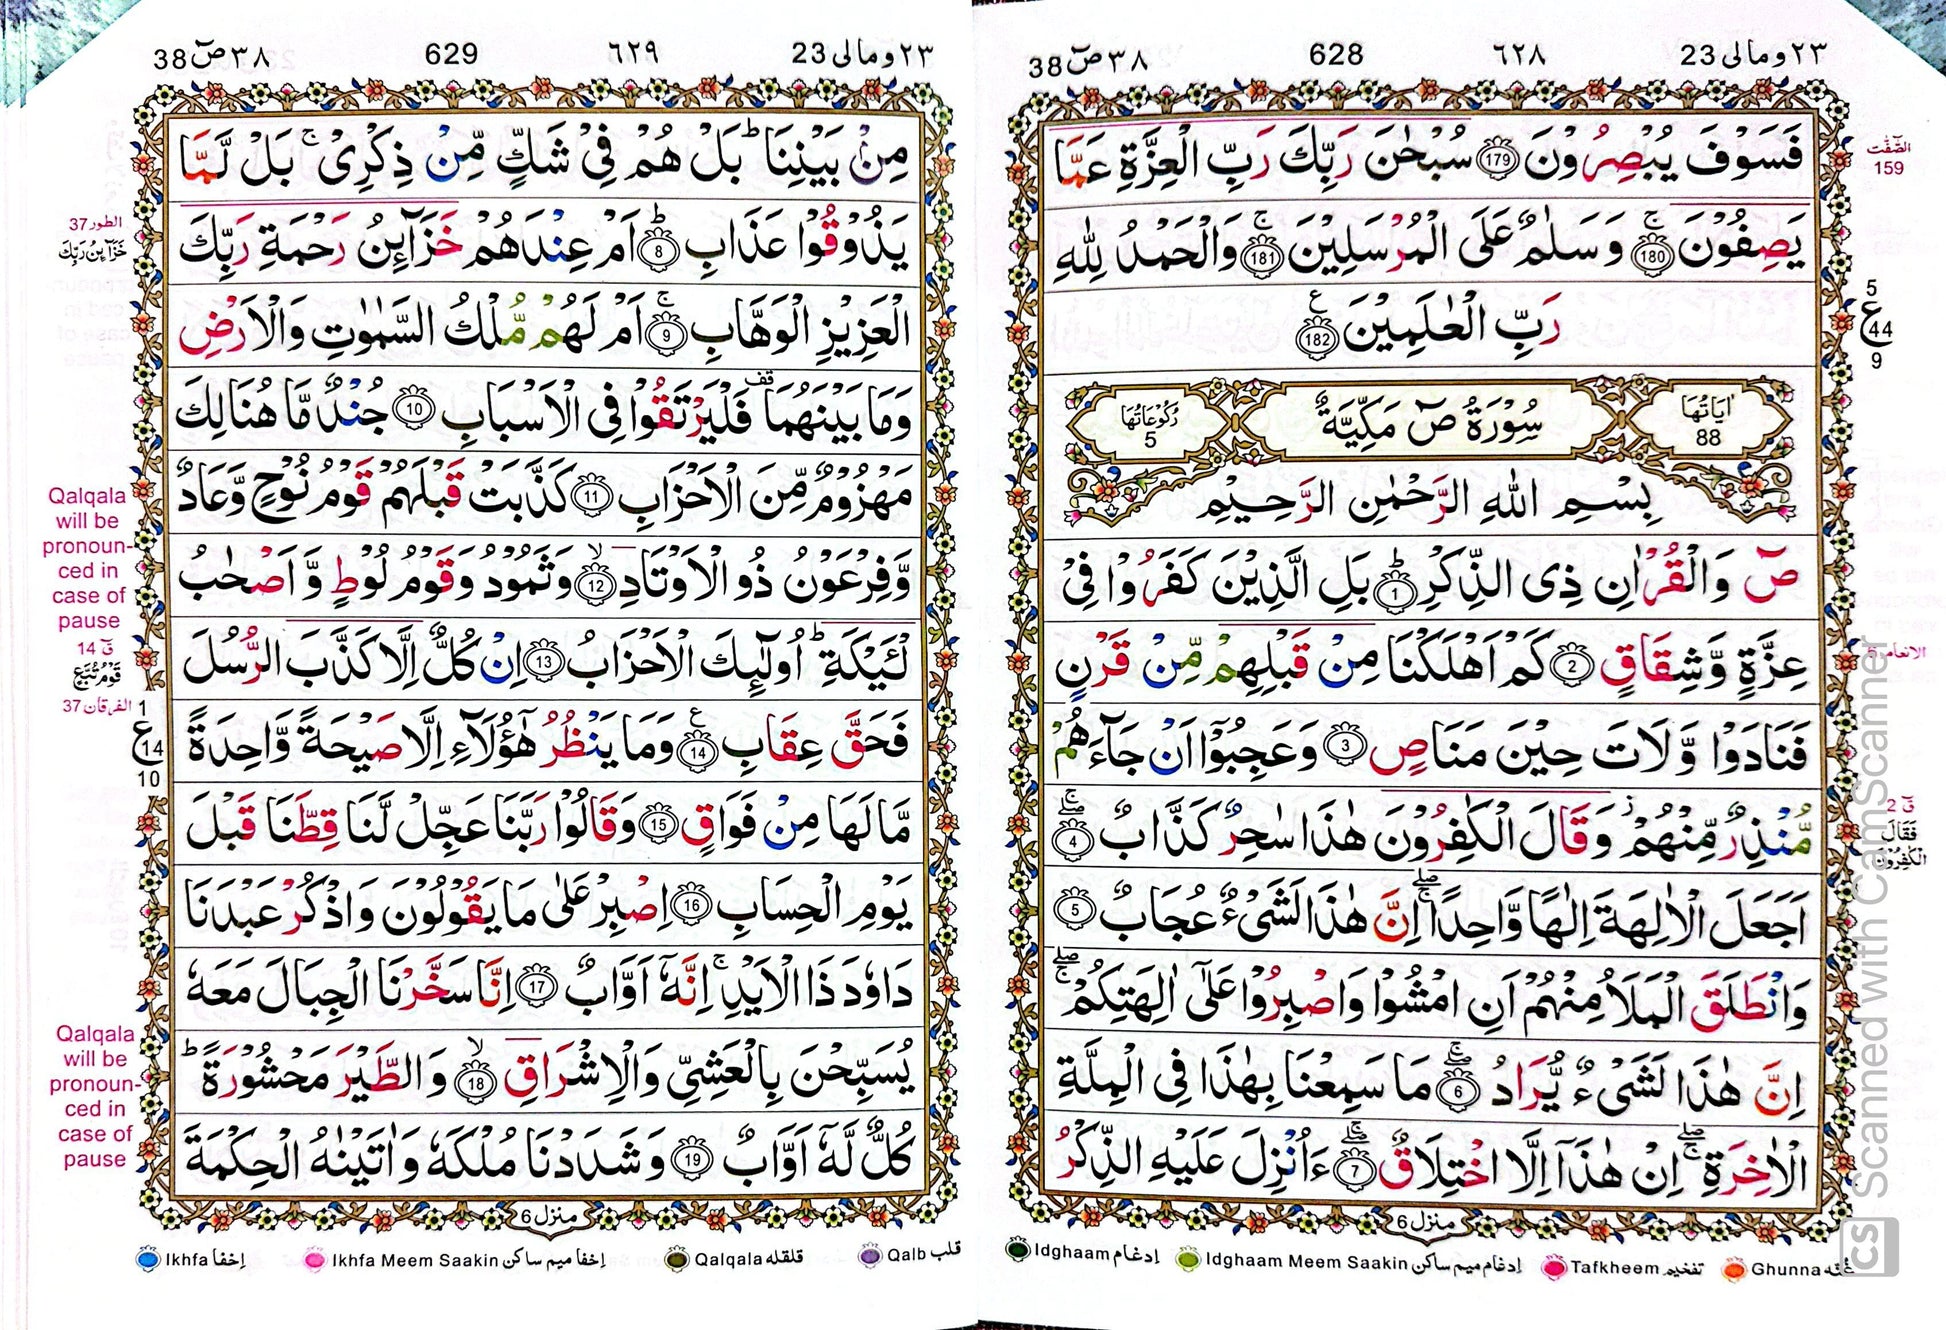 ٢٣ ومالى 23 ٦٢٨ 628 ٣٨ صٓ 38
فَسَوْفَ يُبْصِرُوْنَ 179 سُبْحٰنَ رَبِّكَ رَبِّ الْعِزَّةِ عَمَّا
يَصِفُوْنَ ۚ 180 وَسَلٰمٌ عَلَى الْمُرْسَلِيْنَ ۚ 181 وَالْحَمْدُ لِلّٰهِ
رَبِّ الْعٰلَمِيْنَ ع 182
اٰيَاتُهَا 88 سُوْرَةُ صٓ مَكِّيَّةٌ رُكُوْعَاتُهَا 5
بِسْمِ اللّٰهِ الرَّحْمٰنِ الرَّحِيْمِ
صٓ وَالْقُرْاٰنِ ذِى الذِّكْرِ ؕ 1 بَلِ الَّذِيْنَ كَفَرُوْا فِىْ
عِزَّةٍ وَّشِقَاقٍ 2 كَمْ اَهْلَكْنَا مِنْ قَبْلِهِمْ مِّنْ قَرْنٍ
فَنَادَوْا وَّلَاتَ حِيْنَ مَنَاصٍ 3 وَعَجِبُوْۤا اَنْ جَآءَهُمْ
مُّنْذِرٌ مِّنْهُمْ ؗ وَقَالَ الْكٰفِرُوْنَ هٰذَا سٰحِرٌ كَذَّابٌ ۚۖ 4
اَجَعَلَ الْاٰلِهَةَ اِلٰهًا وَّاحِدًا ۚۖ اِنَّ هٰذَا لَشَىْءٌ عُجَابٌ 5
وَانْطَلَقَ الْمَلَاُ مِنْهُمْ اَنِ امْشُوْا وَاصْبِرُوْا عَلٰٓى اٰلِهَتِكُمْ ۚۖ
اِنَّ هٰذَا لَشَىْءٌ يُّرَادُ ۚۖ 6 مَا سَمِعْنَا بِهٰذَا فِى الْمِلَّةِ
الْاٰخِرَةِ ۚۖ اِنْ هٰذَاۤ اِلَّا اخْتِلَاقٌ ۚۖ 7 ءَاُنْزِلَ عَلَيْهِ الذِّكْرُ
منزل 6
الصّٰفّٰت
159
5
ع 44
9
الانعام 6
قٓ 2
فَقَالَ
الْكٰفِرُوْنَ
Idghaam إدغام Idghaam Meem Saakin إدغام ميم ساكن Tafkheem تفخيم Ghunna غنه
٢٣ ومالى 23 ٦٢٩ 629 ٣٨ صٓ 38
مِنْۢ بَيْنِنَا ؕ بَلْ هُمْ فِىْ شَكٍّ مِّنْ ذِكْرِىْ ۚ بَلْ لَّمَّا
يَذُوْقُوْا عَذَابِ ؕ 8 اَمْ عِنْدَهُمْ خَزَآئِنُ رَحْمَةِ رَبِّكَ
الْعَزِيْزِ الْوَهَّابِ ۚ 9 اَمْ لَهُمْ مُّلْكُ السَّمٰوٰتِ وَالْاَرْضِ
وَمَا بَيْنَهُمَا قف فَلْيَرْتَقُوْا فِى الْاَسْبَابِ 10 جُنْدٌ مَّا هُنَالِكَ
مَهْزُوْمٌ مِّنَ الْاَحْزَابِ 11 كَذَّبَتْ قَبْلَهُمْ قَوْمُ نُوْحٍ وَّعَادٌ
وَّفِرْعَوْنُ ذُو الْاَوْتَادِ ۙ 12 وَثَمُوْدُ وَقَوْمُ لُوْطٍ وَّاَصْحٰبُ
لْـَٔيْكَةِ ؕ اُولٰٓئِكَ الْاَحْزَابُ 13 اِنْ كُلٌّ اِلَّا كَذَّبَ الرُّسُلَ
فَحَقَّ عِقَابِ ع 14 وَمَا يَنْظُرُ هٰٓؤُلَآءِ اِلَّا صَيْحَةً وَّاحِدَةً
مَّا لَهَا مِنْ فَوَاقٍ 15 وَقَالُوْا رَبَّنَا عَجِّلْ لَّنَا قِطَّنَا قَبْلَ
يَوْمِ الْحِسَابِ 16 اِصْبِرْ عَلٰى مَا يَقُوْلُوْنَ وَاذْكُرْ عَبْدَنَا
دَاوٗدَ ذَا الْاَيْدِ ۚ اِنَّهٗۤ اَوَّابٌ 17 اِنَّا سَخَّرْنَا الْجِبَالَ مَعَهٗ
يُسَبِّحْنَ بِالْعَشِىِّ وَالْاِشْرَاقِ ۙ 18 وَالطَّيْرَ مَحْشُوْرَةً ؕ
كُلٌّ لَّهٗۤ اَوَّابٌ 19 وَشَدَدْنَا مُلْكَهٗ وَاٰتَيْنٰهُ الْحِكْمَةَ
منزل 6
الطور 37
خَزَآئِنُ رَبِّكَ
Qalqala
will be
pronoun-
ced in
case of
pause
قٓ 14
قَوْمُ تُبَّعٍ
الفرقان 37
1
ع 14
10
Qalqala
will be
pronoun-
ced in
case of
pause
Ikhfa إخفا Ikhfa Meem Saakin إخفا ميم ساكن Qalqala قلقله Qalb قلب
CS Scanned with CamScanner